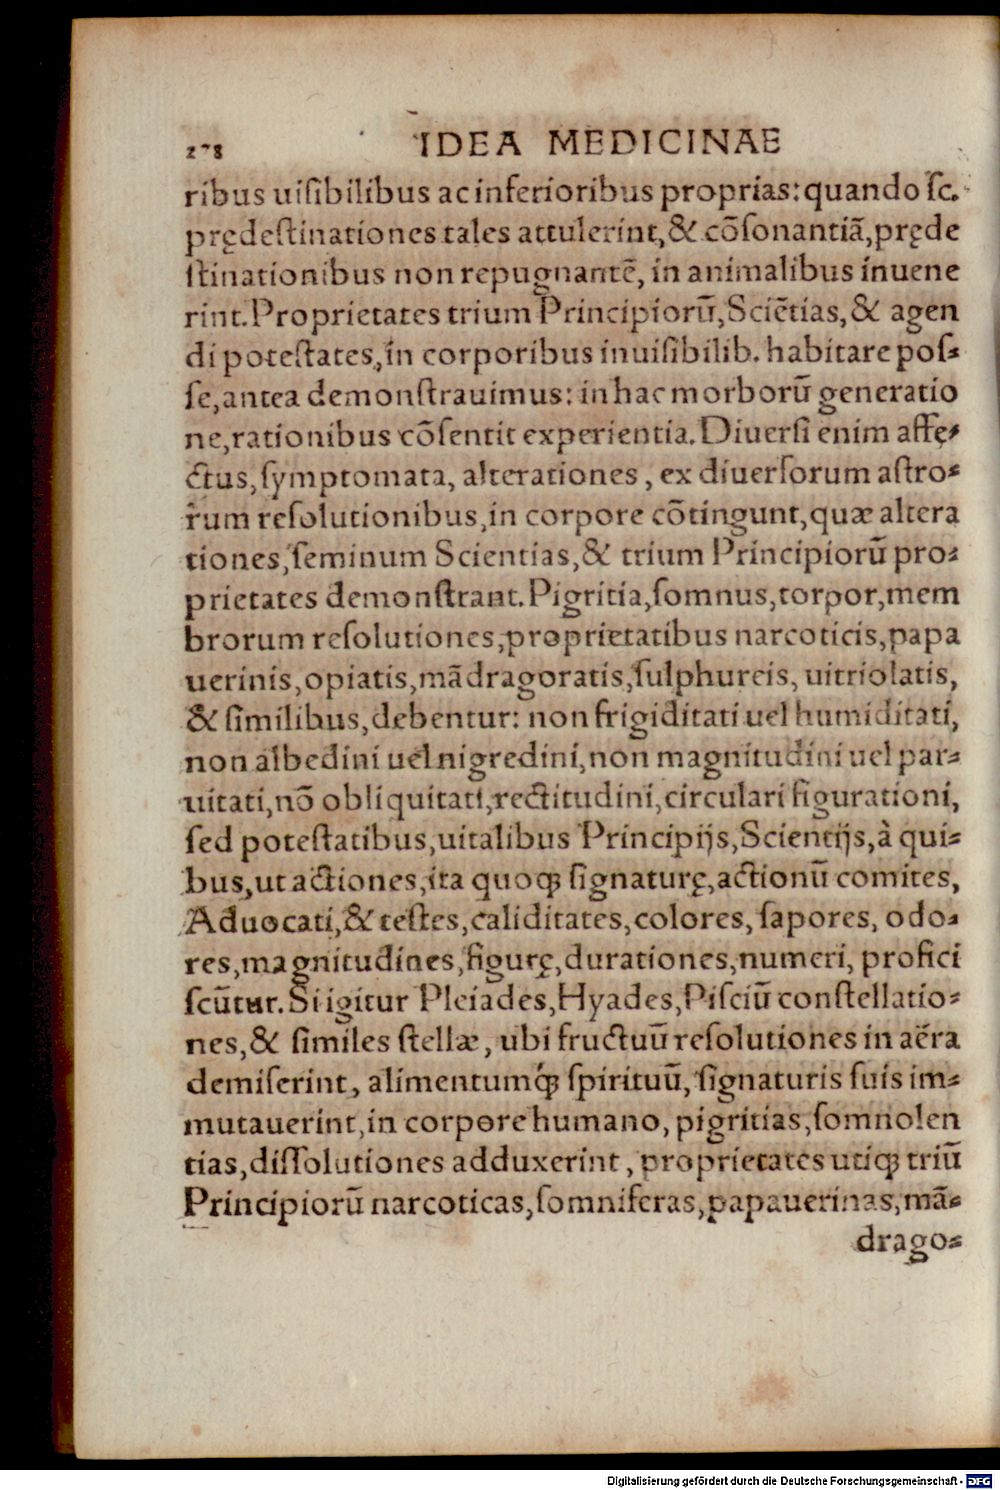 278 IDEA MEDICINAE
ribus uisibilibus ac inferioribus proprias: quando sc.
prędestinationes tales attulerint, & cōsonantiā, pręde
stinationibus non repugnantē, in animalibus inuene
rint. Proprietates trium Principiorū, Sciētias, & agen
di potestates, in corporibus inuisibilib. habitare pos-
se, antea demonstrauimus: in hac morborū generatio
ne, rationibus cōsentit experientia. Diuersi enim affę-
ctus, symptomata, alterationes, ex diuersorum astro-
rum resolutionibus, in corpore cōtingunt, quæ altera
tiones, seminum Scientias, & trium Principiorū pro-
prietates demonstrant. Pigritia, somnus, torpor, mem
brorum resolutiones, proprietatibus narcoticis, papa
uerinis, opiatis, mādragoratis, sulphureis, uitriolatis,
& similibus, debentur: non frigiditati uel humiditati,
non albedini uel nigredini, non magnitudini uel par-
uitati, nō obliquitati, rectitudini, circulari figurationi,
sed potestatibus, uitalibus Principijs, Scientijs, à qui-
bus, ut actiones, ita quoqꝫ signaturę, actionū comites,
Aduocati, & testes, caliditates, colores, sapores, odo-
res, magnitudines, figurę, durationes, numeri, profici
scūtur. Si igitur Pleiades, Hyades, Pisciū constellatio-
nes, & similes stellæ, ubi fructuū resolutiones in aëra
demiserint, alimentumq́ꝫ spirituū, signaturis suis im-
mutauerint, in corpore humano, pigritias, somnolen
tias, dissolutiones adduxerint, proprietates utiqꝫ triū
Principiorū narcoticas, somniferas, papauerinas, mā-
drago-
Digitalisierung gefördert durch die Deutsche Forschungsgemeinschaft - DFG